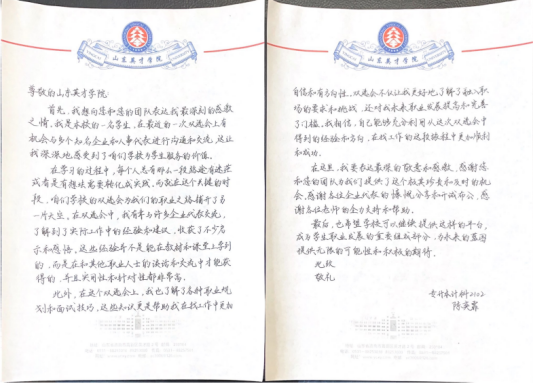 山东英才学院
尊敬的山东英才学院:
首先,我想向您和您的团队表达我最深刻的感激
之情,我是本校的一名学生,在最近的一次双选会上有
机会与多个知名企业和人事代表进行沟通和交流,这让
我深深地感受到了咱们学校与学生服务的价值。
在学习的过程中,每个人总有那么一段路途有迷茫
或者是有想法需要转化成实践,而就在这个关键的时
段,咱们学校的双选会为我们的职业之路铺开了另
一片天空。在双选会中,我有幸与许多企业代表交流,
了解到了实际工作中的经验和建议,收获了不少启
示和感悟,这些经验并不是能在教材和课堂上学到
的,而是在和其他职业人士的谈话和交流中才能获
得的,并且实用性和针对性都非常高。
此外,在这个双选会上,我也了解了各种职业规
划和面试技巧,这些知识更是帮助我在找工作中更加
山东英才学院
自信和有方向性。双选会不仅让我更好地了解了融入职
场的要求和挑战,还对我未来职业发展提高和完善
了门槛,我相信,自己能够充分利用从这次双选会中
得到的经验和方向,在找工作的这段旅程中更加顺利
和成功。
在这里,我要表达最深的敬意和感激,感谢您
和您的团队为我们提供了这个极其珍贵和及时的机
会,感谢各位企业代表的慷慨分享和开诚布公,感
谢各位老师的全力支持和帮助。
最后,也希望学校可以继续提供这样的平台,
成为学生职业发展的重要组成部分,为未来的蓝图
提供无限的可能性和积极的期待。
此致
敬礼
专升本计科2102
陈英霖